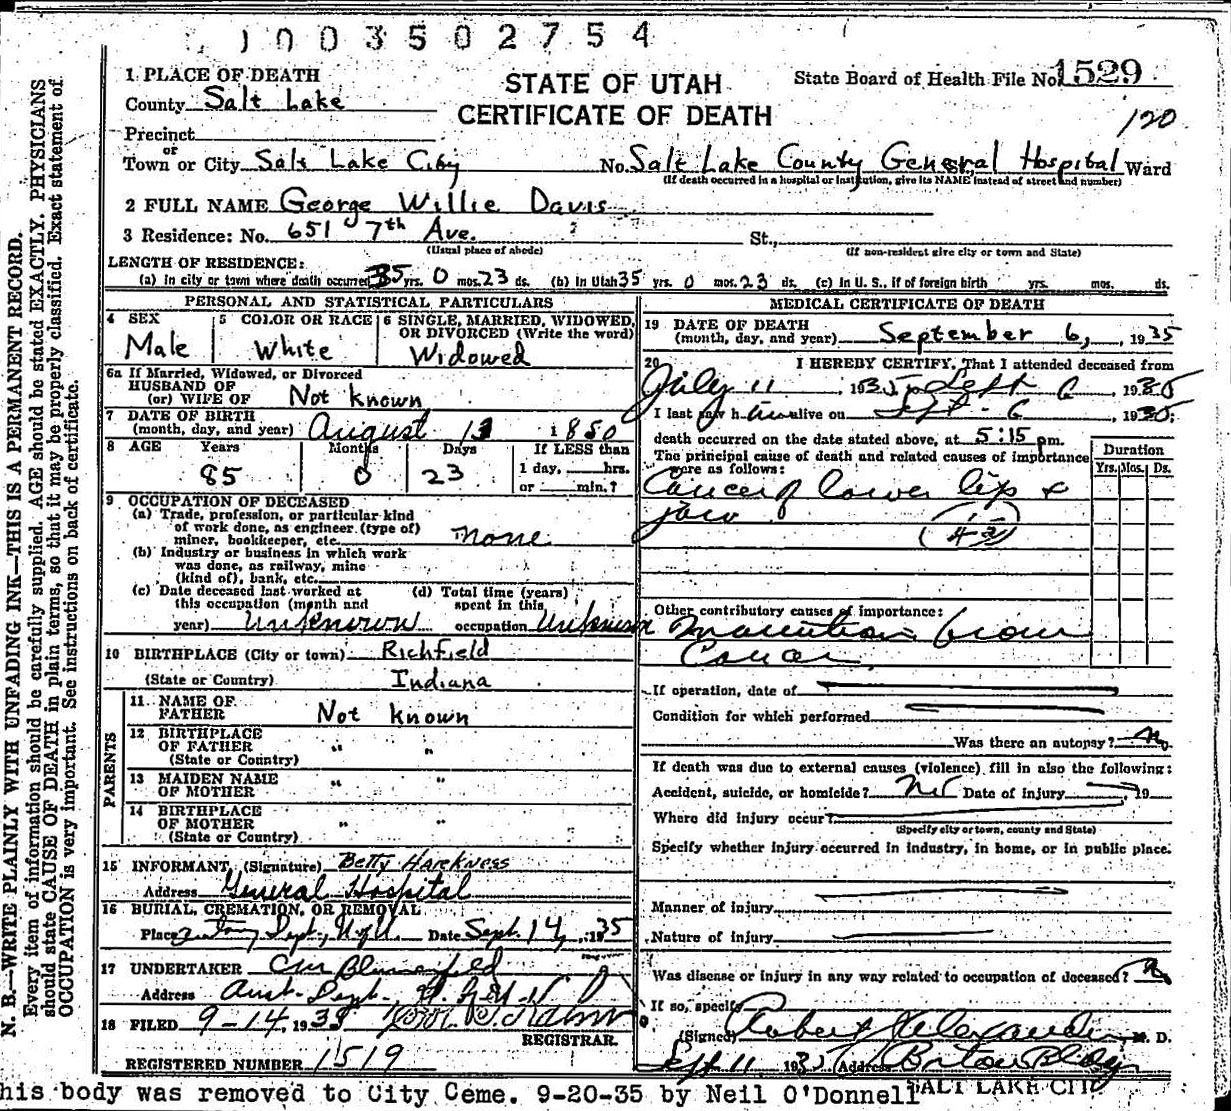 1003502754
1 PLACE OF DEATH
STATE OF UTAH
CERTIFICATE OF DEATH
State Board of Health File No. 1529
120
County Salt Lake
Precinct
or
Town or City Salt Lake City No. Salt Lake County General Hospital Ward
(If death occurred in a hospital or institution, give its NAME instead of street and number)
2 FULL NAME George Willie Davis
3 Residence: No. 651 7th Ave. St.,
(Usual place of abode) (If non-resident give city or town and State)
LENGTH OF RESIDENCE:
(a) In city or town where death occurred 35 yrs. 0 mos. 23 ds. (b) In Utah 35 yrs. 0 mos. 23 ds. (c) In U. S., if of foreign birth yrs. mos. ds.
PERSONAL AND STATISTICAL PARTICULARS
4 SEX
Male
5 COLOR OR RACE
White
6 SINGLE, MARRIED, WIDOWED, OR DIVORCED (Write the word)
Widowed
6a If Married, Widowed, or Divorced
HUSBAND OF
(or) WIFE OF Not known
7 DATE OF BIRTH
(month, day, and year) August 13 1850
8 AGE Years Months Days If LESS than
85 0 23 1 day, hrs.
or min.?
9 OCCUPATION OF DECEASED
(a) Trade, profession, or particular kind
of work done, as engineer (type of)
miner, bookkeeper, etc. none
(b) Industry or business in which work
was done, as railway, mine
(kind of), bank, etc.
(c) Date deceased last worked at
this occupation (month and
year) Unknown
(d) Total time (years)
spent in this
occupation Unknown
10 BIRTHPLACE (City or town) Richfield
(State or Country) Indiana
PARENTS
11 NAME OF
FATHER Not known
12 BIRTHPLACE
OF FATHER " "
(State or Country)
13 MAIDEN NAME
OF MOTHER " "
14 BIRTHPLACE
OF MOTHER " "
(State or Country)
15 INFORMANT (Signature) Betty Harkness
Address General Hospital
16 BURIAL, CREMATION, OR REMOVAL
Place Dept., U of U. Date Sept. 14, 1935
17 UNDERTAKER CM Blumenfield
Address Anat. Dept.
18 FILED 9-14, 1935
REGISTRAR.
REGISTERED NUMBER 1519
MEDICAL CERTIFICATE OF DEATH
19 DATE OF DEATH
(month, day, and year) September 6, 1935
20 I HEREBY CERTIFY, That I attended deceased from
July 11 1935 to Sept 6 1935
I last saw him alive on Sept - 6 1935;
death occurred on the date stated above, at 5:15 pm.
The principal cause of death and related causes of importance
were as follows:
Duration
Yrs. Mos. Ds.
Cancer of lower lip &
jaw
Other contributory causes of importance:
Inanition from
Cancer
If operation, date of
Condition for which performed
Was there an autopsy? No
If death was due to external causes (violence) fill in also the following:
Accident, suicide, or homicide? No Date of injury 19
Where did injury occur?
(Specify city or town, county and State)
Specify whether injury occurred in industry, in home, or in public place.
Manner of injury
Nature of injury
Was disease or injury in any way related to occupation of deceased? No
If so, specify
(Signed) Robert Alexander M. D.
Sept 11 1935 (Address) Boston Bldg
SALT LAKE CITY
his body was removed to City Ceme. 9-20-35 by Neil O'Donnell
N. B.—WRITE PLAINLY WITH UNFADING INK—THIS IS A PERMANENT RECORD.
Every item of information should be carefully supplied. AGE should be stated EXACTLY. PHYSICIANS
should state CAUSE OF DEATH in plain terms, so that it may be properly classified. Exact statement of
OCCUPATION is very important. See instructions on back of certificate.